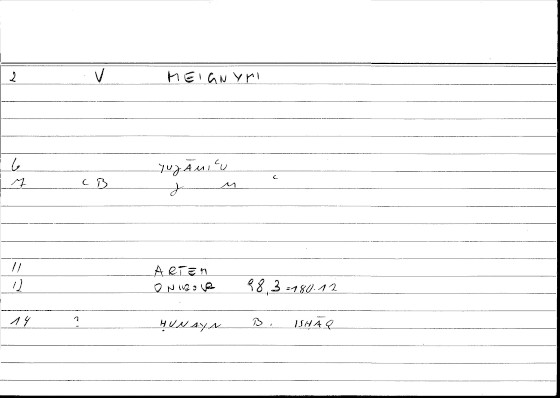 2 V MEIGNYMI
6 YUǧĀMIʿU
7 CB ǧ M ʿ
11 ARTEM
12 ONIROCR 98,3=180.12
14 ? ḤUNAYN B. ISḤĀQ